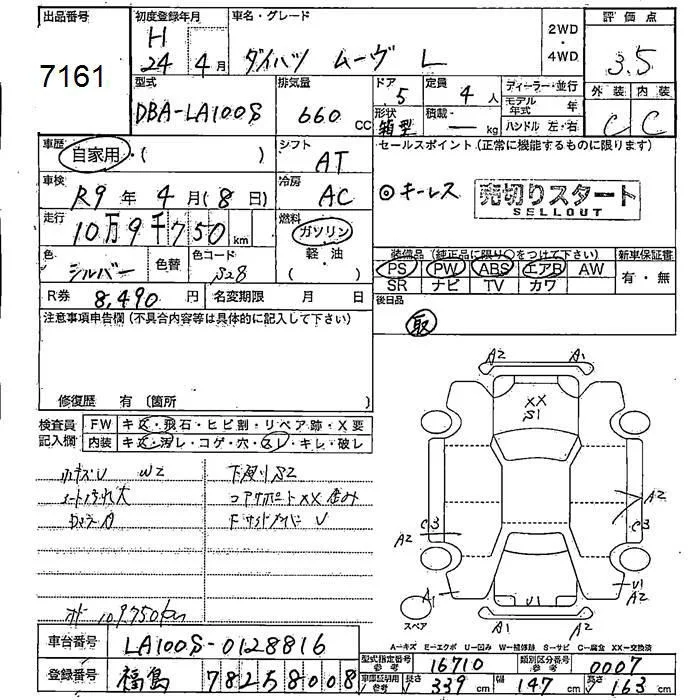 出品番号
7161
初度登録年月
H
24年 4月
車名・グレード
ダイハツ ムーヴ L
2WD
4WD
評価点
3.5
外装 内装
C C
型式
DBA-LA100S
排気量
660 CC
ドア
5
定員
4 人
形状
箱型
積載
— kg
ディーラー・並行
モデル年式 年
ハンドル 左・右
車歴
自家用・( )
シフト
AT
セールスポイント (正常に機能するものに限ります)
◎キーレス
売切りスタート
SELLOUT
車検
R9 年 4 月 (8 日)
冷房
AC
走行
10万9千750 km
燃料
ガソリン
軽・油
( )
色
シルバー
色替
色コード
S28
R券 8,490 円 名変期限 月 日
装備品 (純正品に限り○をつけて下さい)
PS PW ABS エアB AW
SR ナビ TV カワ
新車保証書
有・無
後日品
取
注意事項申告欄 (不具合内容等は具体的に記入して下さい)
修復歴 有 〔箇所 〕
検査員
記入欄
FW キズ・飛石・ヒビ割・リペア跡・X要
内装 キズ・汚レ・コゲ・穴・スレ・キレ・破レ
小キズU W2
シート汚れ大
下廻りS2
コアサポートXX
109750km
A2 A1
XX
S1
A2
C3
C3
A2
A1
U1
U1
A2
A1 A2
スペア
A-キズ E-エクボ U-凹み W-補修跡 S-サビ C-腐食 XX-交換済
車台番号 LA100S-0128816
登録番号 福島 78258008
型式指定番号
参考
16710
類別区分番号
参考
0007
車庫証明用
参考
長さ 339 cm 幅 147 cm 高さ 163 cm